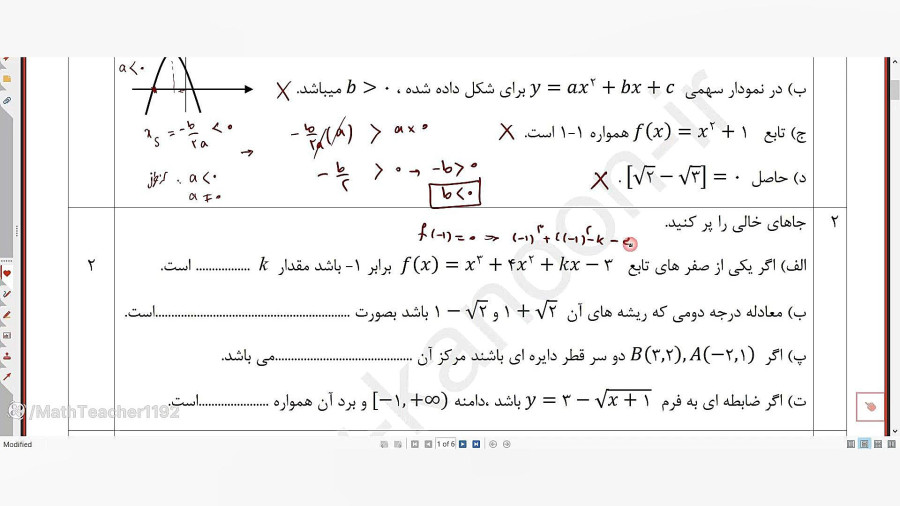 a<۰
ب) در نمودار سهمی y = ax^۲ + bx + c برای شکل داده شده ، b > ۰ میباشد. X
x_s = -b/۲a < ۰
-b/۲a (a) > a×۰
ج) تابع f(x) = x^۲ + ۱ همواره ۱-۱ است. X
a<۰
-b/۲ > ۰ → -b>۰
b<۰
د) حاصل [√۲ − √۳] = ۰ . X
۲
جاهای خالی را پر کنید.
f(-۱)=۰ ⇒ (-۱)^۳+۴(-۱)^۲-k-۳
الف) اگر یکی از صفر های تابع f(x) = x^۳ + ۴x^۲ + kx − ۳ برابر ۱- باشد مقدار k ................. است.
۲
ب) معادله درجه دومی که ریشه های آن ۱ + √۲ و ۱ − √۲ باشد بصورت ..........................................................است.
پ) اگر B(۳,۲), A(−۲,۱) دو سر قطر دایره ای باشند مرکز آن .........................................می باشد.
ت) اگر ضابطه ای به فرم y = ۳ − √x + ۱ باشد ،دامنه [−۱, +∞) و برد آن همواره .....................است.
/MathTeacher1192
Modified
1 of 6